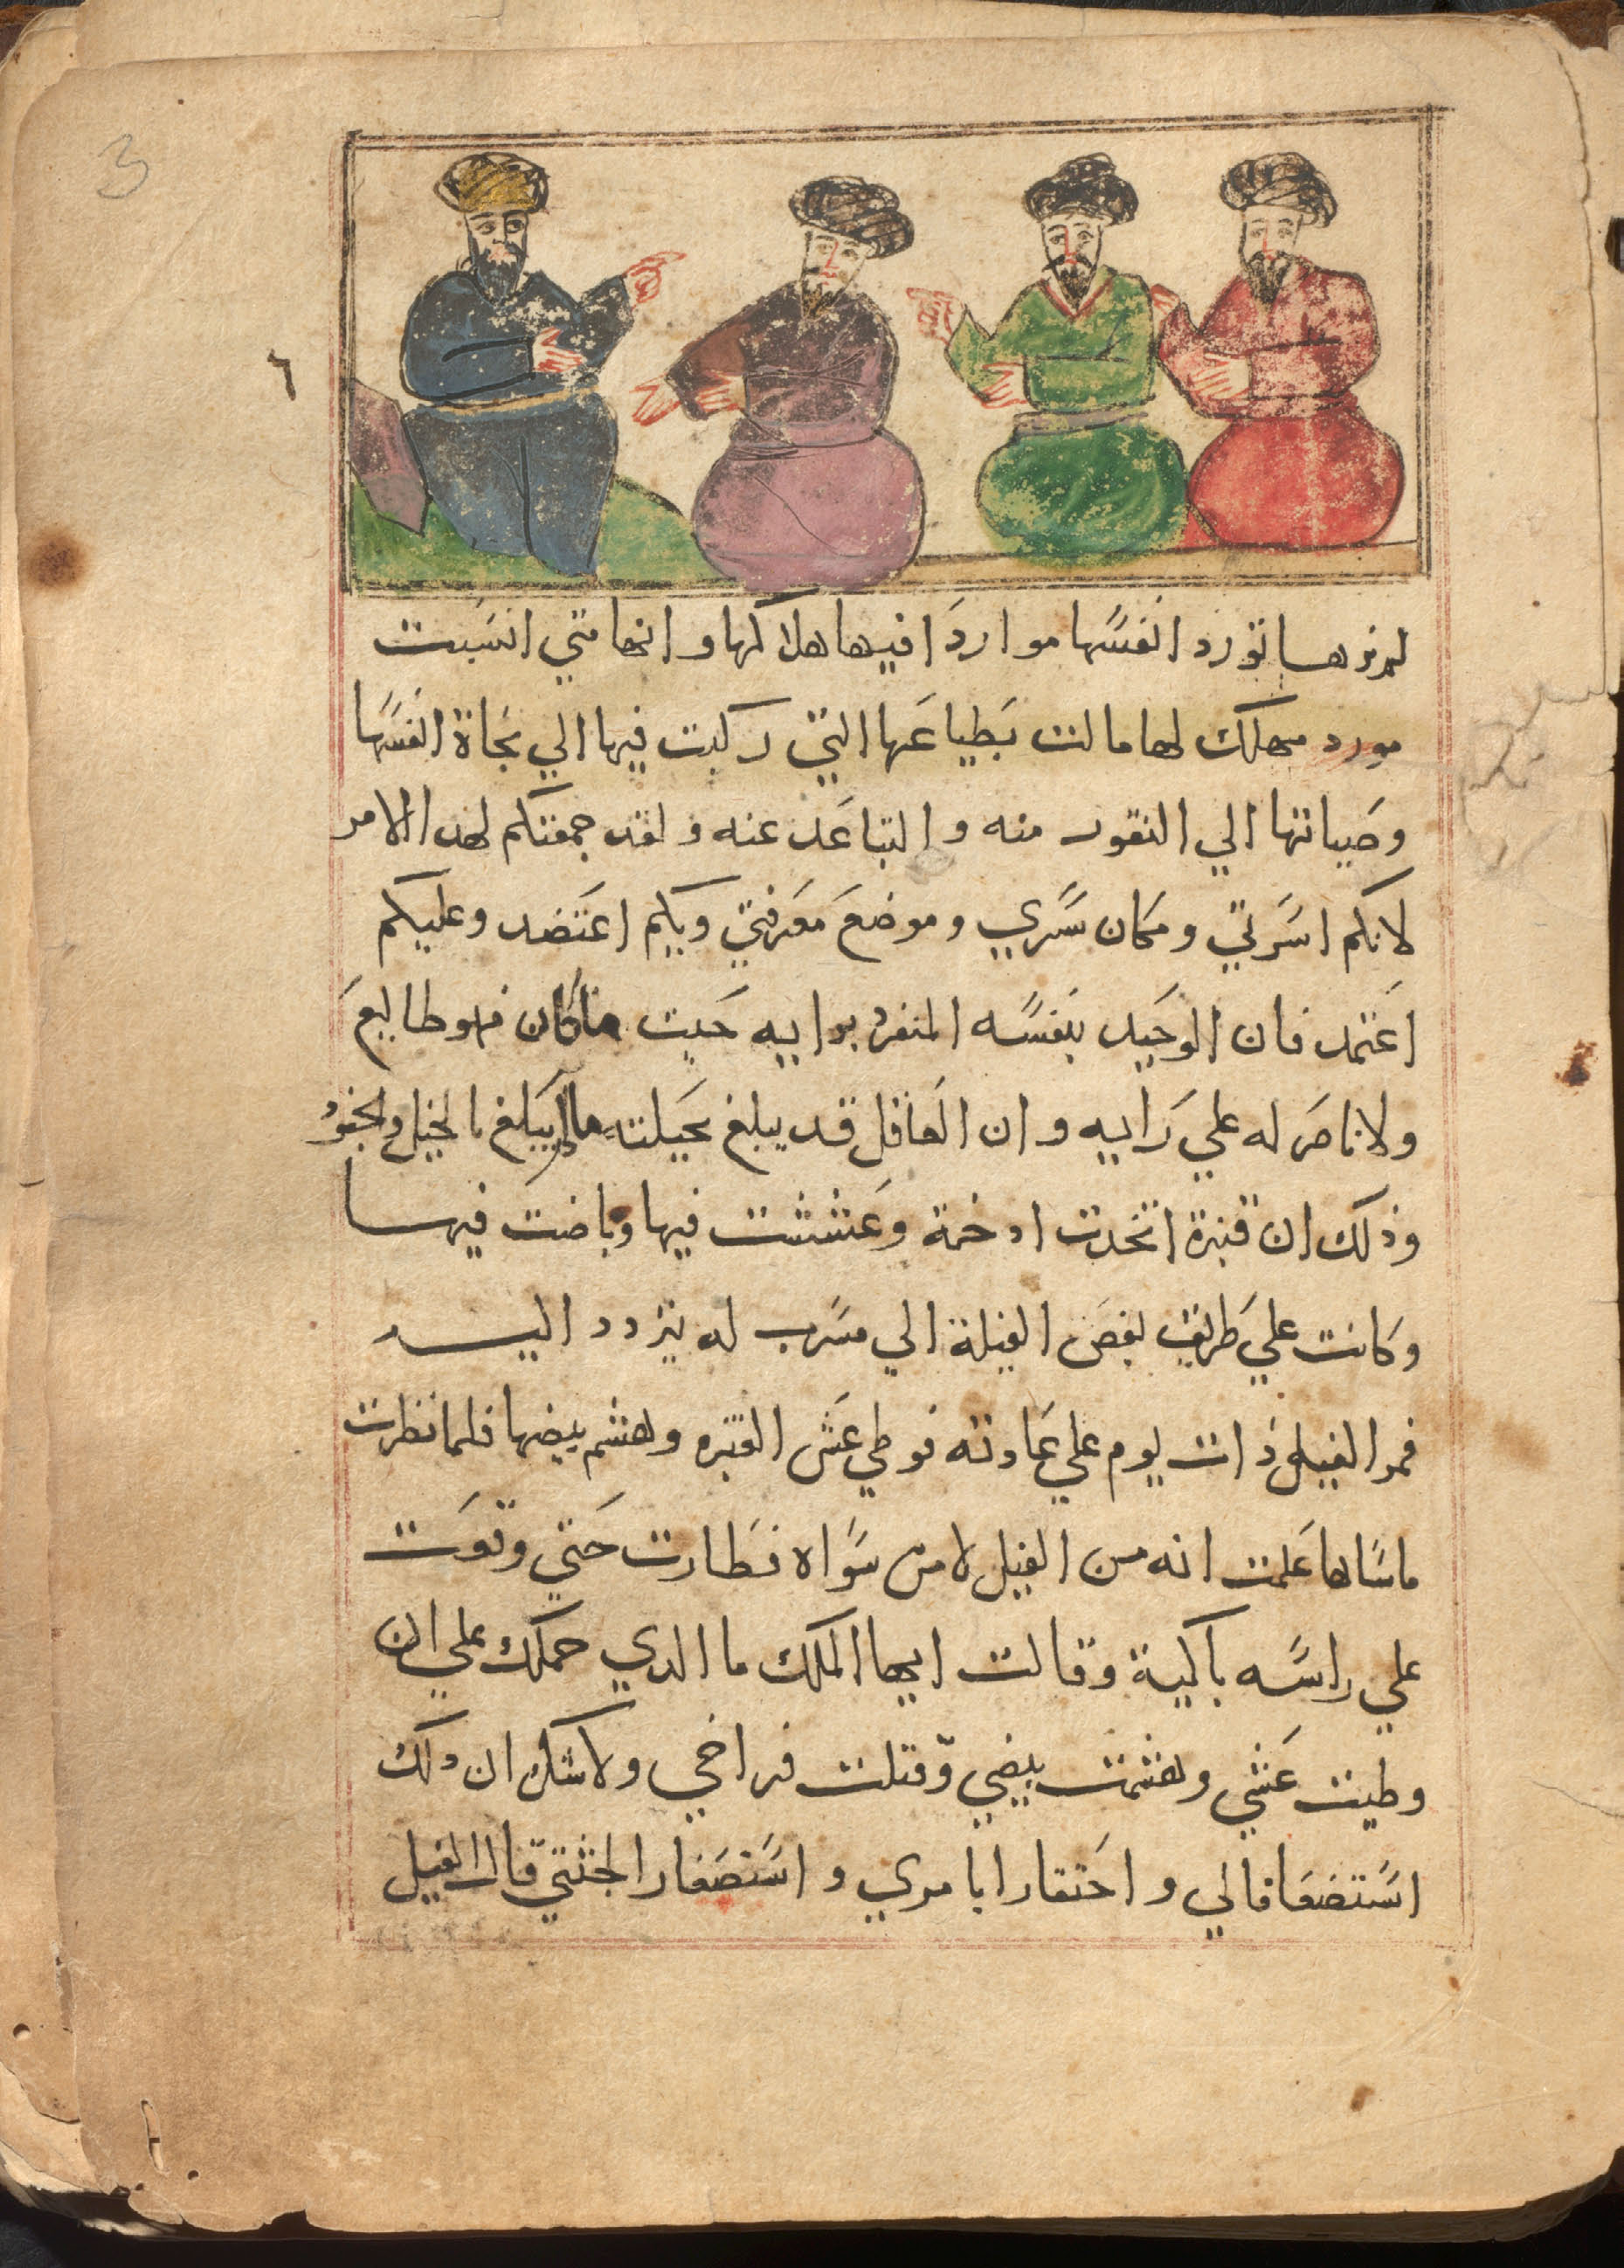 3
٦
لم نرها تورد انفسها مواردا فيها هلاكها وانها متي انسبت
مورد مهلك لها مالت بطباعها التي ركبت فيها الي نجاة انفسها
وصيانتها الي النفور منه والتباعد عنه ولقد جمعتكم لهدا الامر
لانكم اسرتي ومكان سري وموضع معرفتي وبكم اعتضد وعليكم
اعتمد فان الوحيد بنفسه المنفرد برايه حيت ماكان فهو طايع
ولا ناصر له علي رايه وان العاقل قد يبلغ بحيلته مالا يبلغ بالخيل والجنود
وذلك ان قنبرة اتخدت ادخمة وعششت فيها وباضت فيها
وكانت علي طريق بعض الفيلة الي مسرب له يتردد اليه
فمر الفيل ذات يوم علي عادته فوطي عش القنبره وهشم بيضها فلما نظرت
ماساها علمت انه من الفيل لا من سواه فطارت حتي وقعت
علي راسه باكية وقالت ايها الملك ما الدي حملك علي ان
وطيت عشي وهشمت بيضي وقتلت فراخي ولا شك ان دلك
استضعافا لي واحتقارا بامري واستصغارا لجثتي قال الفيل